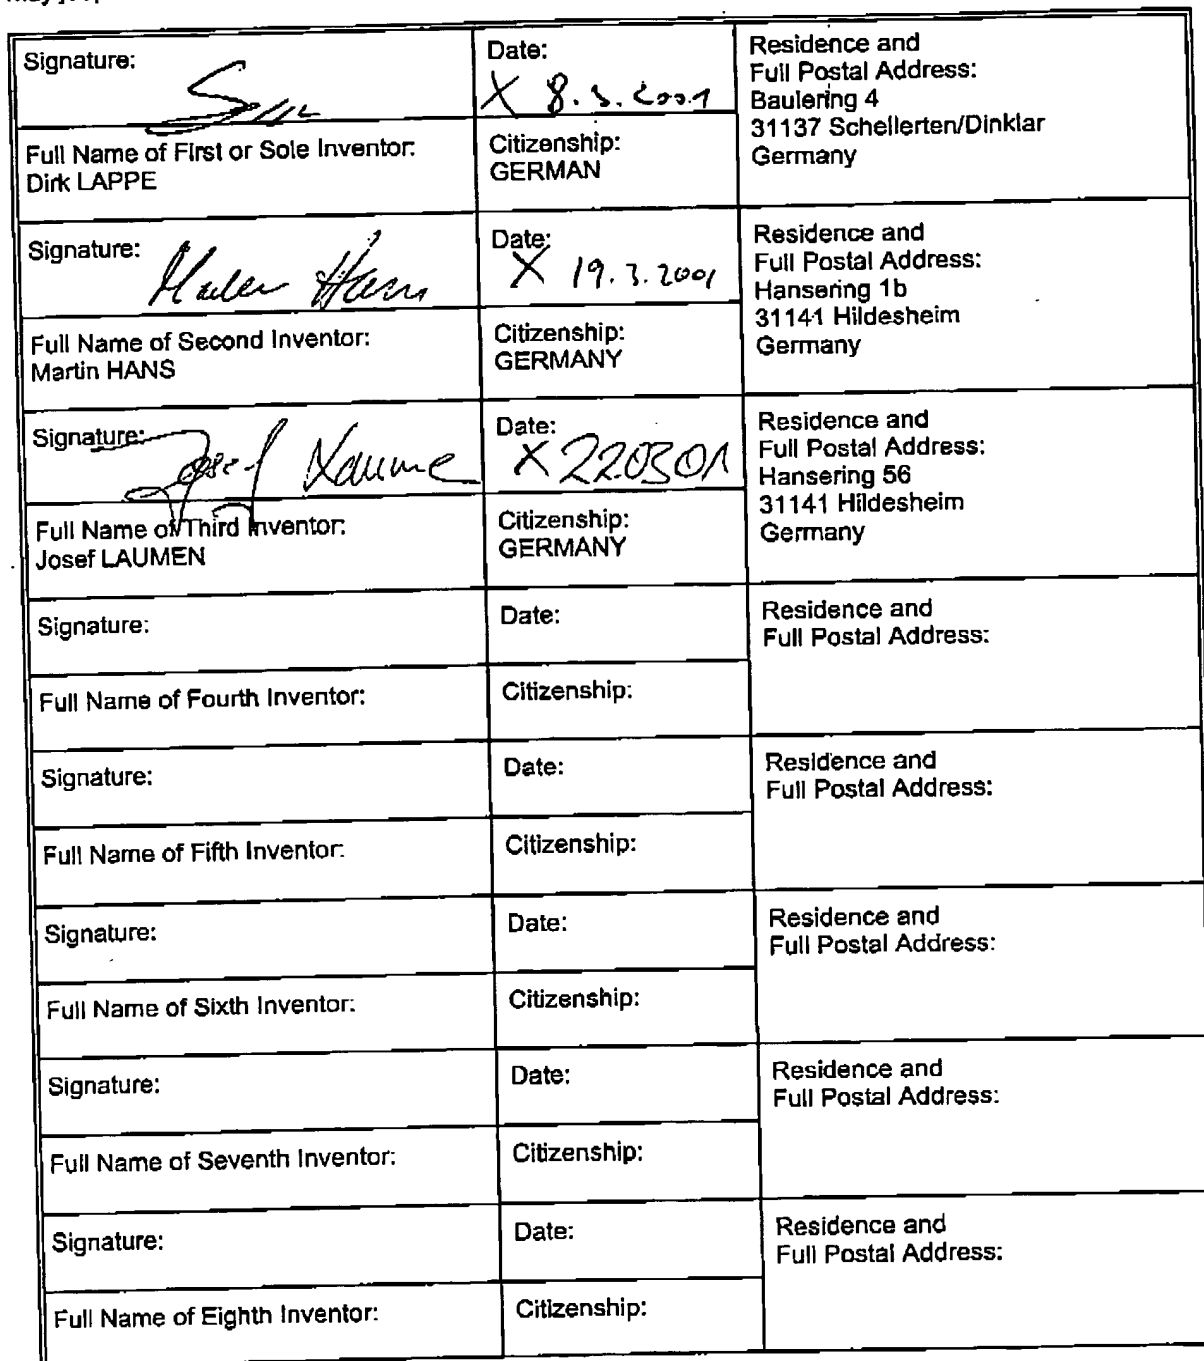 Signature:
Date:
X 8.3.2001
Residence and
Full Postal Address:
Baulering 4
31137 Schellerten/Dinklar
Germany
Full Name of First or Sole Inventor:
Dirk LAPPE
Citizenship:
GERMAN
Signature: Martin Hans
Date:
X 19.3.2001
Residence and
Full Postal Address:
Hansering 1b
31141 Hildesheim
Germany
Full Name of Second Inventor:
Martin HANS
Citizenship:
GERMANY
Signature: Josef Laumen
Date:
X 220301
Residence and
Full Postal Address:
Hansering 56
31141 Hildesheim
Germany
Full Name of Third Inventor:
Josef LAUMEN
Citizenship:
GERMANY
Signature:
Date:
Residence and
Full Postal Address:
Full Name of Fourth Inventor:
Citizenship:
Signature:
Date:
Residence and
Full Postal Address:
Full Name of Fifth Inventor:
Citizenship:
Signature:
Date:
Residence and
Full Postal Address:
Full Name of Sixth Inventor:
Citizenship:
Signature:
Date:
Residence and
Full Postal Address:
Full Name of Seventh Inventor:
Citizenship:
Signature:
Date:
Residence and
Full Postal Address:
Full Name of Eighth Inventor:
Citizenship: